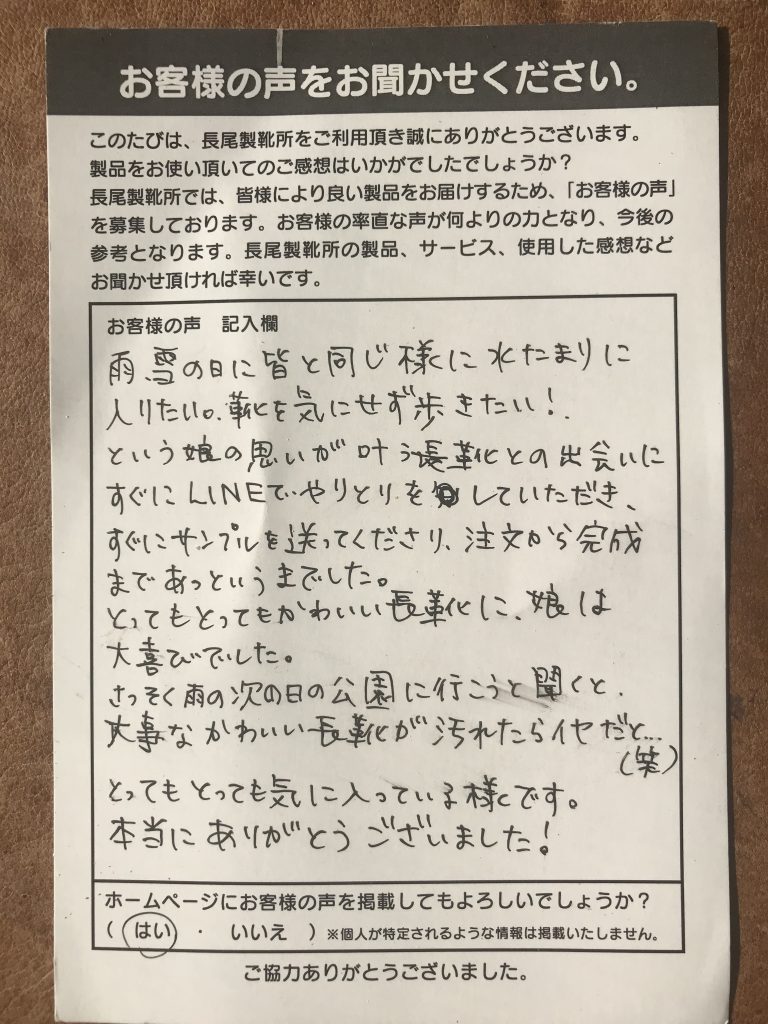 お客様の声をお聞かせください。
このたびは、長尾製靴所をご利用頂き誠にありがとうございます。
製品をお使い頂いてのご感想はいかがでしたでしょうか？
長尾製靴所では、皆様により良い製品をお届けするため、「お客様の声」
を募集しております。お客様の率直な声が何よりの力となり、今後の
参考となります。長尾製靴所の製品、サービス、使用した感想など
お聞かせ頂ければ幸いです。
お客様の声　記入欄
雨雪の日に皆と同じ様に水たまりに
入りたい。靴を気にせず歩きたい！
という娘の思いが叶う長靴との出会いに
すぐにLINEでやりとりをしていただき、
すぐにサンプルを送ってくださり、注文から完成
まであっというまでした。
とってもとってもかわいい長靴に、娘は
大喜びでした。
さっそく雨の次の日の公園に行こうと聞くと、
大事なかわいい長靴が汚れたらイヤだと…
（笑）
とってもとっても気に入っている様です。
本当にありがとうございました！
ホームページにお客様の声を掲載してもよろしいでしょうか？
（　はい　・　いいえ　）※個人が特定されるような情報は掲載いたしません。
ご協力ありがとうございました。